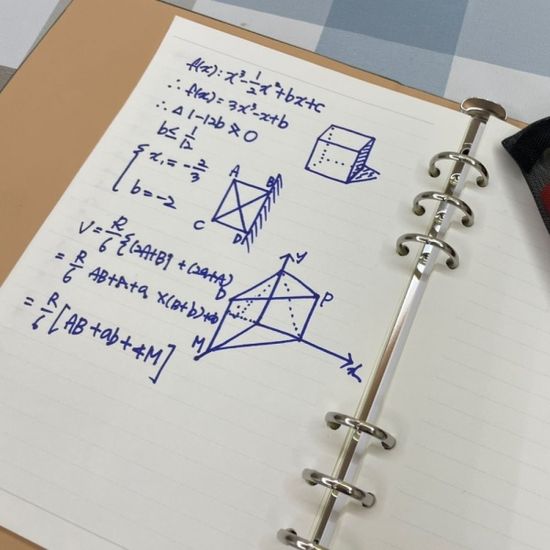 f(x): x³-½x²+bx+c
∴ f(x)=3x³-x+b
∴ Δ 1-12b ≥ 0
b ≤ 1/12
{ x₁ = -2/3
b = -2
A B
C D
V = R/6 {(2A+B) + (2a+A)
= R/6 AB+A+a ×(B+b)+ab
= R/6 [AB+ab+4M]
y
D P
M
x